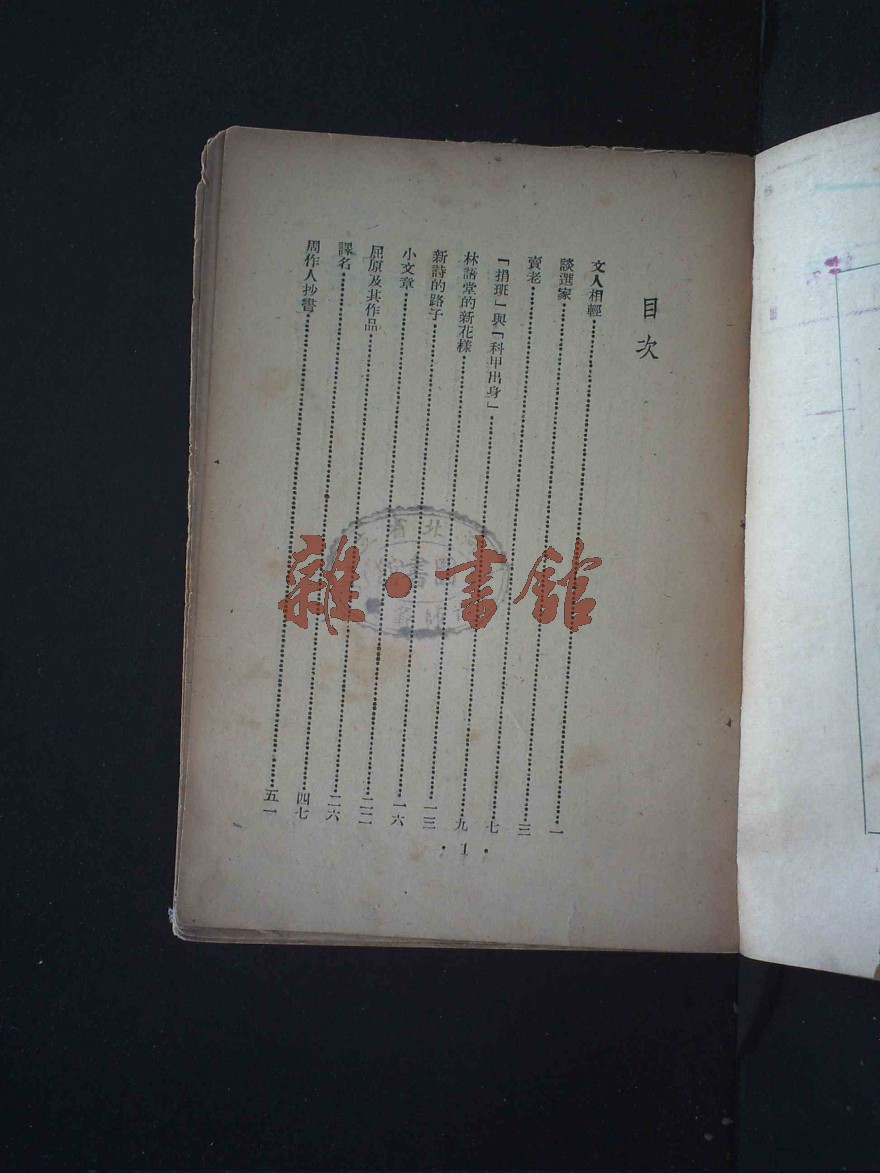 目次
文人相輕……一
談選家……三
賣老……七
「捐班」與「科甲出身」……九
林語堂的新花樣……一三
新詩的路子……一六
小文章……二二
屈原及其作品……二六
譯名……四七
周作人抄書……五一
·1·
雜·書館
北省
圖書館